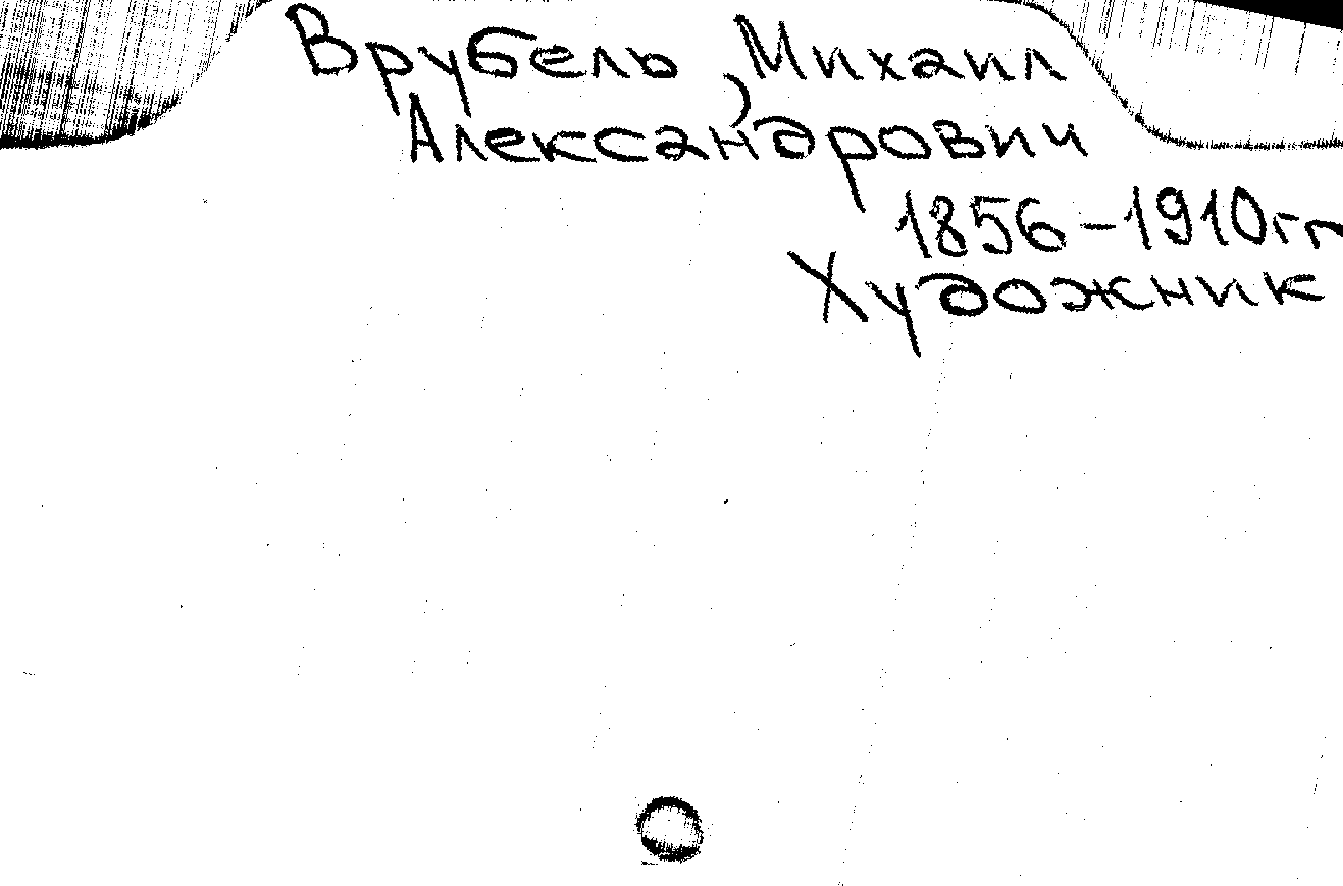 Врубель, Михаил
Александрович
1856-1910гг
Художник